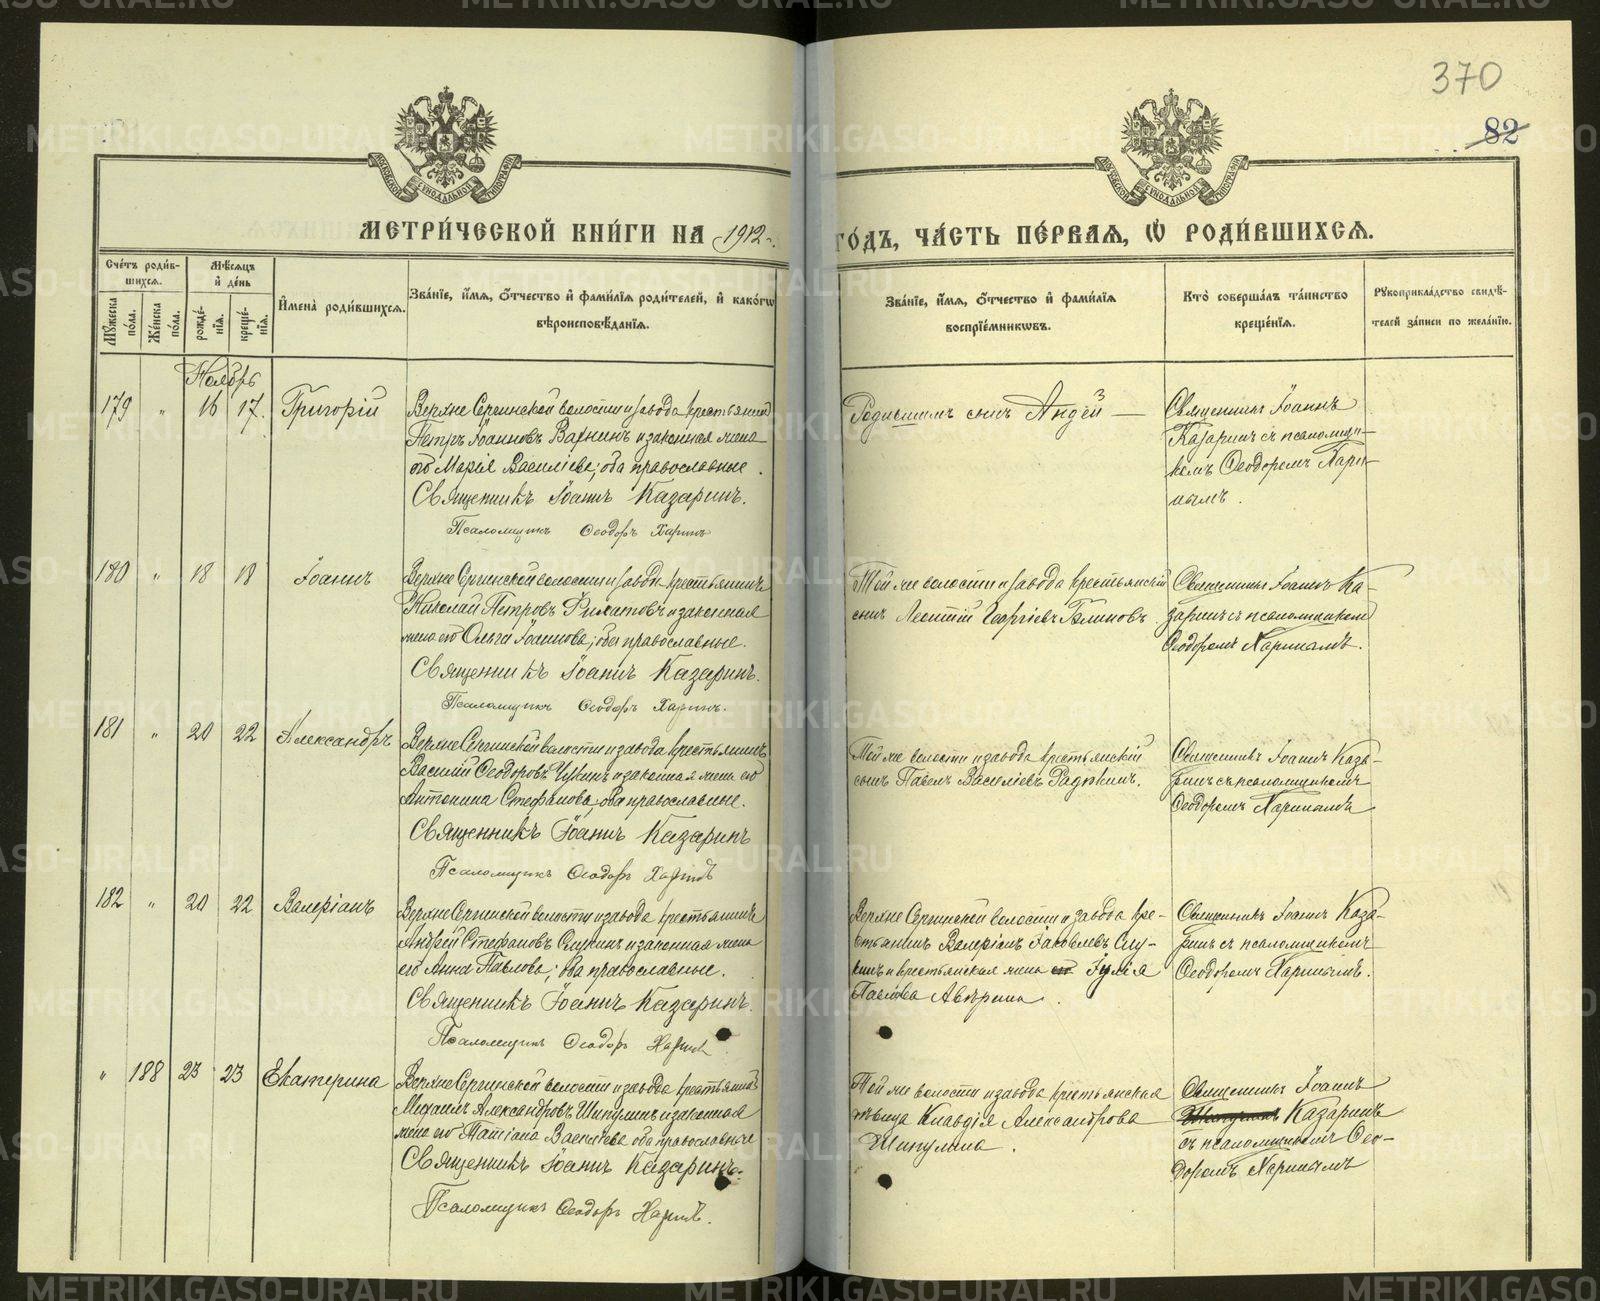 370
82
МОСКОВСКОЙ СѴНОДАЛЬНОЙ ТИПОГРАФІИ
МОСКОВСКОЙ СѴНОДАЛЬНОЙ ТИПОГРАФІИ
МЕТРИ́ЧЕСКОЙ КНИ́ГИ НА 1912 г.
ГО́ДЪ, ЧА́СТЬ ПЕ́РВАЯ, Ѡ РОДИ́ВШИХСЯ.
Сче́тъ роди́в-
шихся.
Му́жеска по́ла.
Же́нска по́ла.
Мѣ́сяцъ
и҆ де́нь
рожде́-
нїя.
креще́-
нїя.
И҆мена̀ роди́вшихся.
Зва́нїе, и҆́мя, ѻ҆́тчество и҆ фами́лїя роди́телей, и҆ како́гѡ
вѣроисповѣ́данїя.
Зва́нїе, и҆́мя, ѻ҆́тчество и҆ фами́лїя
воспрїе́мникѡвъ.
Кто̀ соверша́лъ та́инство
креще́нїя.
Рꙋкоприкла́дство свидѣ́-
телей за́писи по жела́нїю.
Ноябрь
179 " 16 17. Григорій
Верхне Сергинской волости и завода крестьянинъ
Петръ Іоанновъ и законная жена
его Марія Василіева; оба православные.
Священникъ Іоаннъ Казаринъ.
Псаломщикъ Ѳеодоръ Харинъ
Родившимъ сынъ Андей —
Священникъ Іоаннъ
Казаринъ съ псаломщи-
комъ Ѳеодоромъ Хари-
нымъ.
180 " 18 18 Іоаннъ
Верхне Сергинской волости и завода крестьянинъ
Николай Петровъ и законная
жена его Ольга Іоаннова; оба православные.
Священникъ Іоаннъ Казаринъ.
Псаломщикъ Ѳеодоръ Харинъ.
Той же волости и завода крестьянскій
сынъ Леонтій Георгіевъ Блиновъ
Священникъ Іоаннъ Ка-
заринъ съ псаломщикомъ
Ѳеодоромъ Харинымъ.
181 " 20 22 Александръ
Верхне Сергинской волости и завода крестьянинъ
Василій Ѳеодоровъ и законная жена его
Антонина Стефанова, оба православные.
Священникъ Іоаннъ Казаринъ
Псаломщикъ Ѳеодоръ Харинъ
Той же волости и завода крестьянскій
сынъ Павелъ Василіевъ
Священникъ Іоаннъ Каза-
ринъ съ псаломщикомъ
Ѳеодоромъ Харинымъ
182 " 20 22 Валеріанъ
Верхне Сергинской волости и завода крестьянинъ
Андрей Стефановъ и законная жена
его Анна Павлова; оба православные.
Священникъ Іоаннъ Казаринъ.
Псаломщикъ Ѳеодоръ Харинъ
Верхне Сергинской волости и завода кре-
стьянинъ Валеріанъ Іаковлевъ
и крестьянская жена Іулія
Павлова Аверина.
Священникъ Іоаннъ Каза-
ринъ съ псаломщикомъ
Ѳеодоромъ Харинымъ.
" 188 23 23 Екатерина
Верхне Сергинской волости и завода крестьянинъ
Михаилъ Александровъ Шипулинъ и законная
жена его Татіана Василіева оба православные
Священникъ Іоаннъ Казаринъ.
Псаломщикъ Ѳеодоръ Харинъ.
Той же волости и завода крестьянская
дѣвица Клавдія Александрова
Шипулина.
Священникъ Іоаннъ
Казаринъ
съ псаломщикомъ Ѳео-
доромъ Харинымъ
METRIKI.GASO-URAL.RU